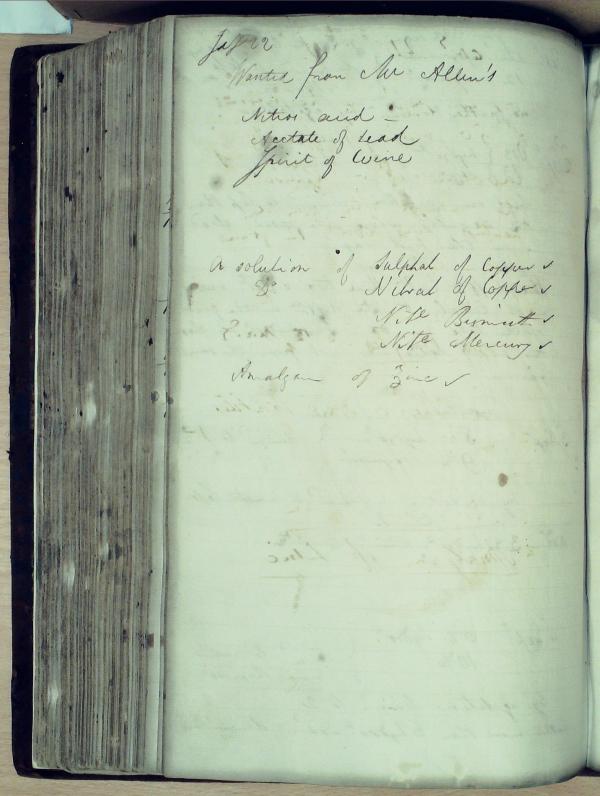 22
Wanted from Mr Allen's
Nitros acid -
Acetate of Lead
Spirit of Wine
A solution of Sulphat of Copper ✓
Do Nitrat of Copper ✓
Nite Bismuth ✓
Nite Mercury ✓
Amalgam of Zinc ✓